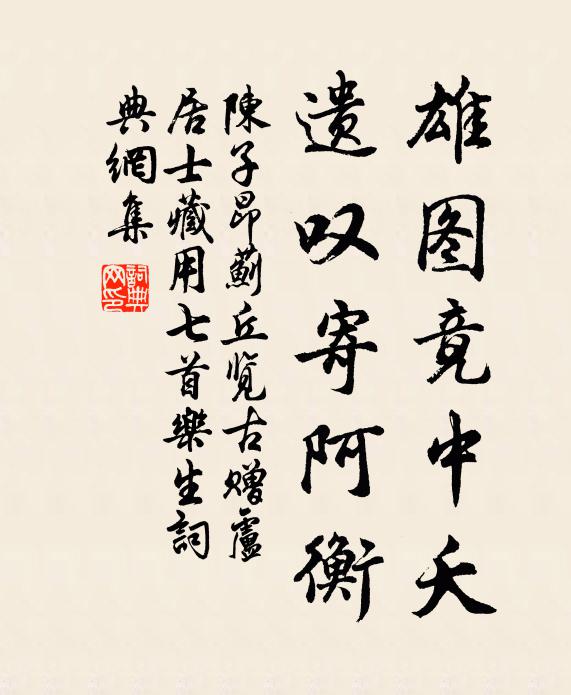 雄图竟中夭
遗叹寄阿衡
陳子昂薊丘览古赠盧
居士藏用七首樂生詞
典網集
詞典
网印